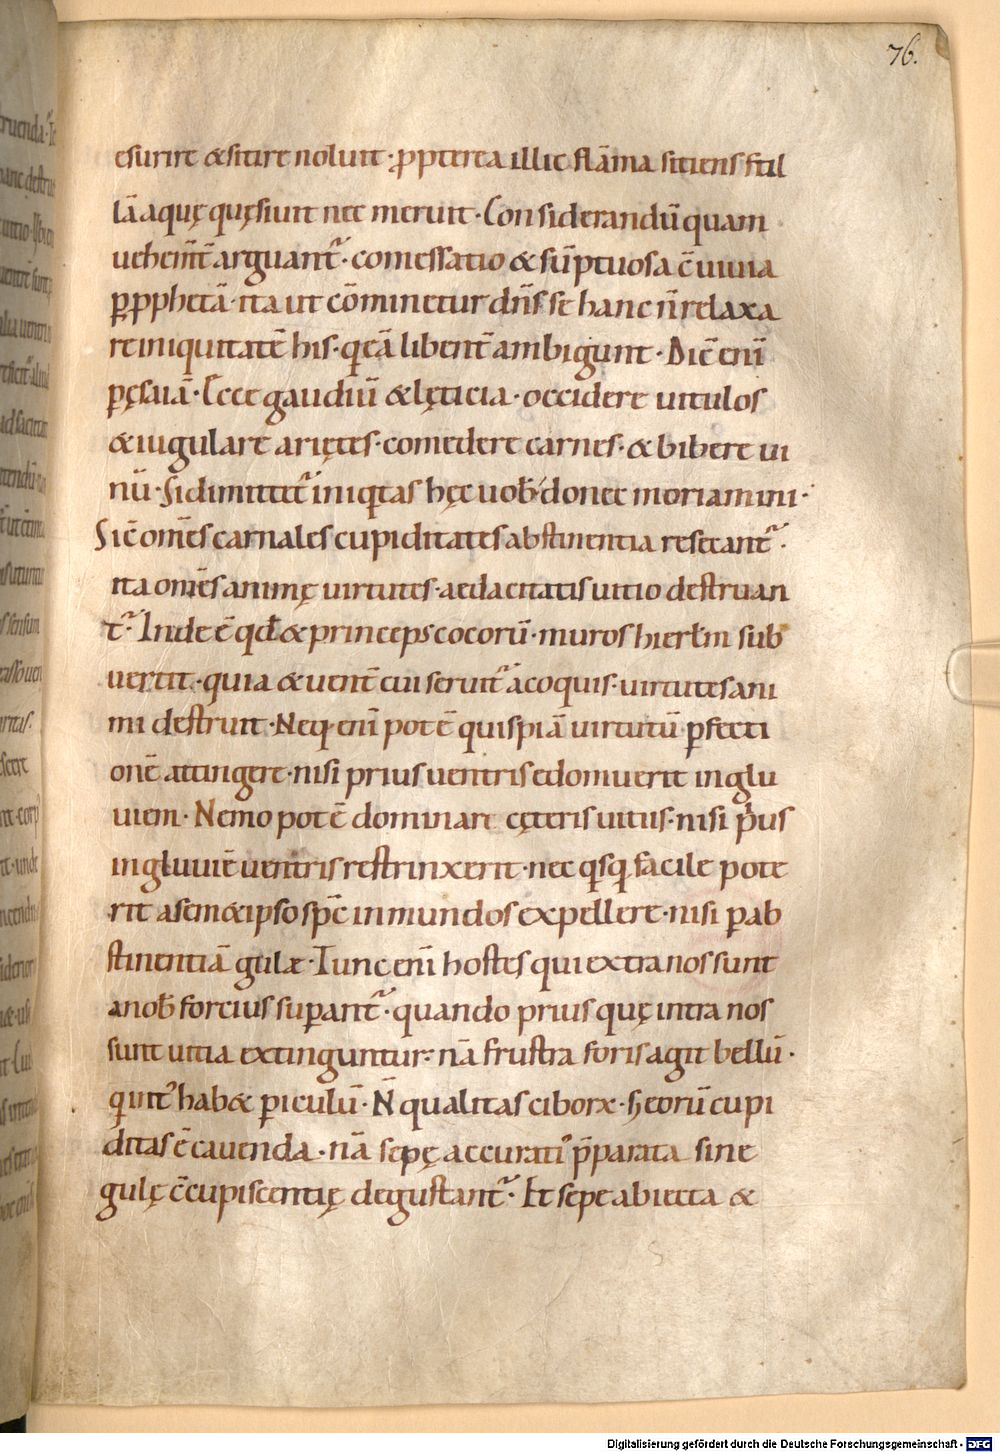 76.
esurire &sitire noluit · ꝓpterea illic flāma sitiens stil
lā aquę quęsiuit nec meruit · Considerandū quam
uehem̄t arguant᷑ · comessatio & sūptuosa c̄uiuia
ꝑ ꝓphetā · ita ut cōminetur dn̄s se hanc n̄ relaxa
re iniquitatē his · q eā libent̄ ambigunt · Dic̄ enī
ꝑ ęsaiā · Ecce gaudiū & lęticia · occidere uitulos
& iugulare ariętes · comedere carnes · & bibere ui
nū · Si dimittet᷑ iniqtas hęc uob̄ donec moriamini ·
Sic̄ om̄es carnales cupiditates abstinentia resecant᷑ ·
ita om̄es animę uirtutes · aedacitatis uitio destruan
t᷑ · Inde ē qd̄ & princeps cocorū · muros hierl̄m sub
uertit · quia & uent̄ cui seruit᷑ a coquis · uirtutes ani
mi destruit · Neq; enī pot ē quispiā uirtutū ꝑfecti
onē attingere · nisi prius uentris edomuerit inglu
uiem · Nemo pot ē dominari cęteris uitiis · nisi p̄us
ingluuiē uentris restrinxerit · nec qsq facile pote
rit a sem&ipso sp̄c inmundos expellere · nisi ꝑ ab
stinentiā gulæ · Tunc enī hostes qui extra nos sunt
a nob̄ forcius suꝑant᷑ · quando prius quę intra nos
sunt uitia extinguntur · nā frustra foris agit bellū ·
q int᷑ hab& ꝑiculū · N̄ qualitas ciborꝝ · s; eorū cupi
ditas ē cauenda · nā sepę accurati᷒ p̄parata sine
gulę c̄cupiscentię degustant᷑ · Et sepe abiecta &
Digitalisierung gefördert durch die Deutsche Forschungsgemeinschaft - DFG